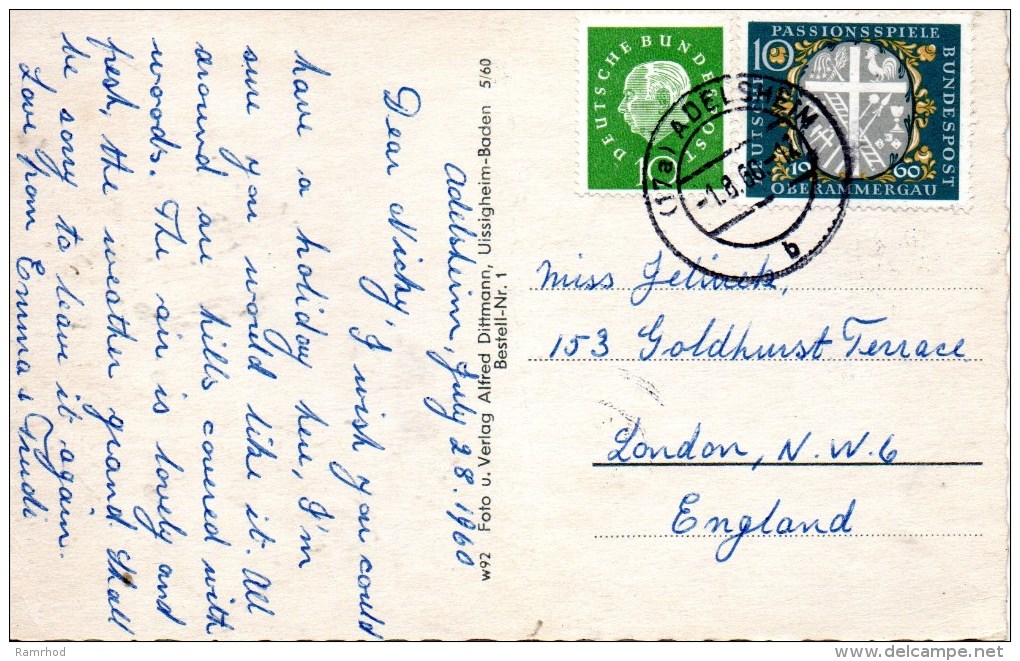 Adelsheim, July 28. 1960
Dear Nicky, I wish you could
have a holiday here, I'm
sure you would like it. All
around are hills covered with
woods. The air is lovely and
fresh, the weather grand. Shall
be sorry to leav it again.
Love from Emma & Trudi
w92 Foto u. Verlag Alfred Dittmann, Uissigheim-Baden 5/60
Bestell-Nr. 1
DEUTSCHE BUNDESPOST
10
10
PASSIONSSPIELE
DEUTSCHE
BUNDESPOST
1960
OBERAMMERGAU
(17a) ADELSHEIM
-1.8.60
b
Miss Jelinek,
153 Goldhurst Terrace
London, N.W.6
England
Ramrhod
delcampe.net